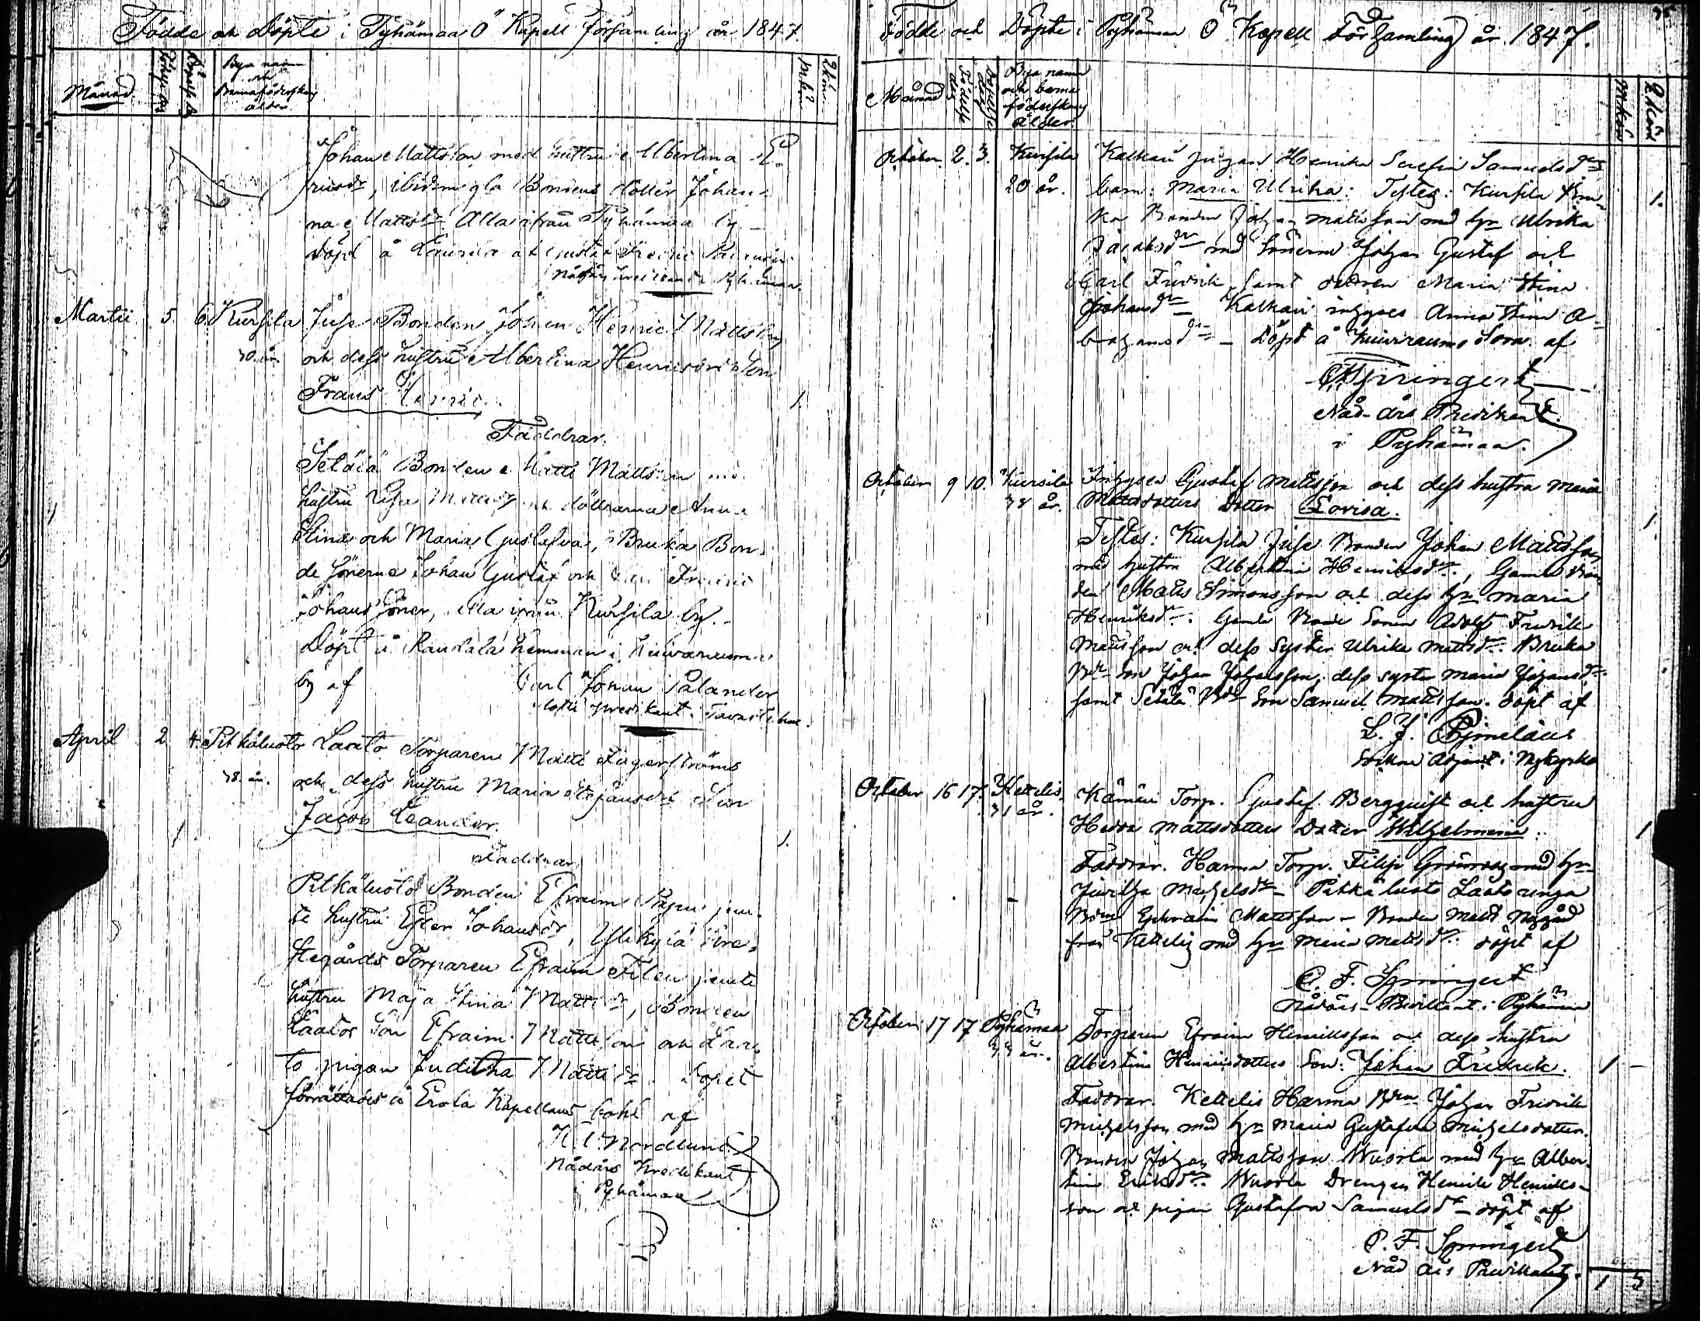 Födde och Döpte i Pyhämaa Ö Kapell församling år 1847.
Månad
Bya namn
och
Barnaföderskans
ålder.
Johan Mattsson med hustru Albertina E-
ricsdr, Bondens dotter Johan-
na Mattsdr Alla ifrån Pyhämaa by
Döpt å Laurila af Gustaf Fredric
Martii 5. 6. Kursila Juse Bonden Johan Henric Mattsson
30 år och dess hustru Albertina Henricsdrs Son
Frans Henric. 1.
Faddrar.
Setälä Bonden Matti Mattsson med
hustru Lisa och döttrarna Anna
Stina och Maria Gustafva, Bruka Bon-
de sönerne Johan Gustaf och Fredric
Johans Söner, alla ifrån Kursila by.
Döpt å Raudala hemman i Kuivarauma
by af Carl Johan Palander
predikant i Tavastehus.
April 2 4. Pitkäluoto Laato Torparen Matti Fagerströms
38 år. och dess hustru Maria Son
Jacob Leander. 1.
Faddrar.
Pitkäluoto Bonden Efraim jem-
te hustru Ester Johansdr,
Torparen Efraim Filen jemte
hustru Maja Stina Mattsdr, Bonden
Laatos Son Efraim Mattsson och Laa-
to pigan Juditha Mattsdr. Dopet
förrättades å Erola Kapellans bohl af
K. E. Nordlund
Nådårs Predikant
i Pyhämaa
Födde och Döpte i Pyhämaa Ö Kapell Församling år 1847.
Månad
Födelse
Bya namn
och barna
föderskans
ålder.
October 2. 3. Kursila Katkari pigan Henrika Serafia Samuelsdrs
20 år. barn: Maria Ulrika: Testes: Kursila Bru- 1.
ka Bonden Johan Mattsson med hu Ulrika
Jacobsdr med sönerne Johan Gustaf och
Carl Fredrik, samt dottren Maria Stina
Johansdr Katkari inhyses Anna Stina A-
brahamsdr — Döpt å Kuivrauma Sora af
C F Springert
Nåd-års Predikant
i Pyhämaa.
October 9 10. Kursila Inhyses Gustaf Mattsson och dess hustru Maria
38 år. Mattsdotters Dotter Lovisa. 1
Testes: Kursila Juse Bonden Johan Mattsson
med hustru Albertina Henriksdr, Gamla Bon-
den Matts Simonsson och dess hu Maria
Henriksdr. Gamle Bonde Sonen Adolf Fredrik
Mattsson och dess syster Ulrika Mattsdr. Bruka
Bde son Johan Johansson, dess syster Maria Johansdr
samt Setälä Bde Son Samuel Mattsson. döpt af
L. J. Björnelaeus
Sockne Adjunct i Nykyrko
October 16 17. Kettelis Kämäri Torp. Gustaf Bergquist och hustru
31 år. Hedda Mattsdotters Dotter Wilhelmina. 1
Faddrar. Harma Torp. Filip Grönroos med hu
Juditha Michelsdr — Pitkäluoto Laato unga
Bond Ephraim Mattsson — Bonden Matts Nygård
från Kettelis med hu Maria Mattsdr. döpt af
C. F. Springert
Nådårs-Predikant i Pyhämaa
October 17 17 Pyhämaa Torparen Efraim Henriksson och dess hustru
33 år. Albertina Henriksdotters Son: Johan Fredrik. 1
Faddrar. Kettelis Harma Bden Johan Fredrik
Michelsson med hu Maria Gustafva Michelsdotter.
Bonden Johan Mattsson Wuorla med hu Alber-
tina Eriksdr. Wuorla Drengen Henrik Henriks-
son och pigan Gustafva Samuelsdr — döpt af
C. F. Springert
Nåd års Predikant.
1 5